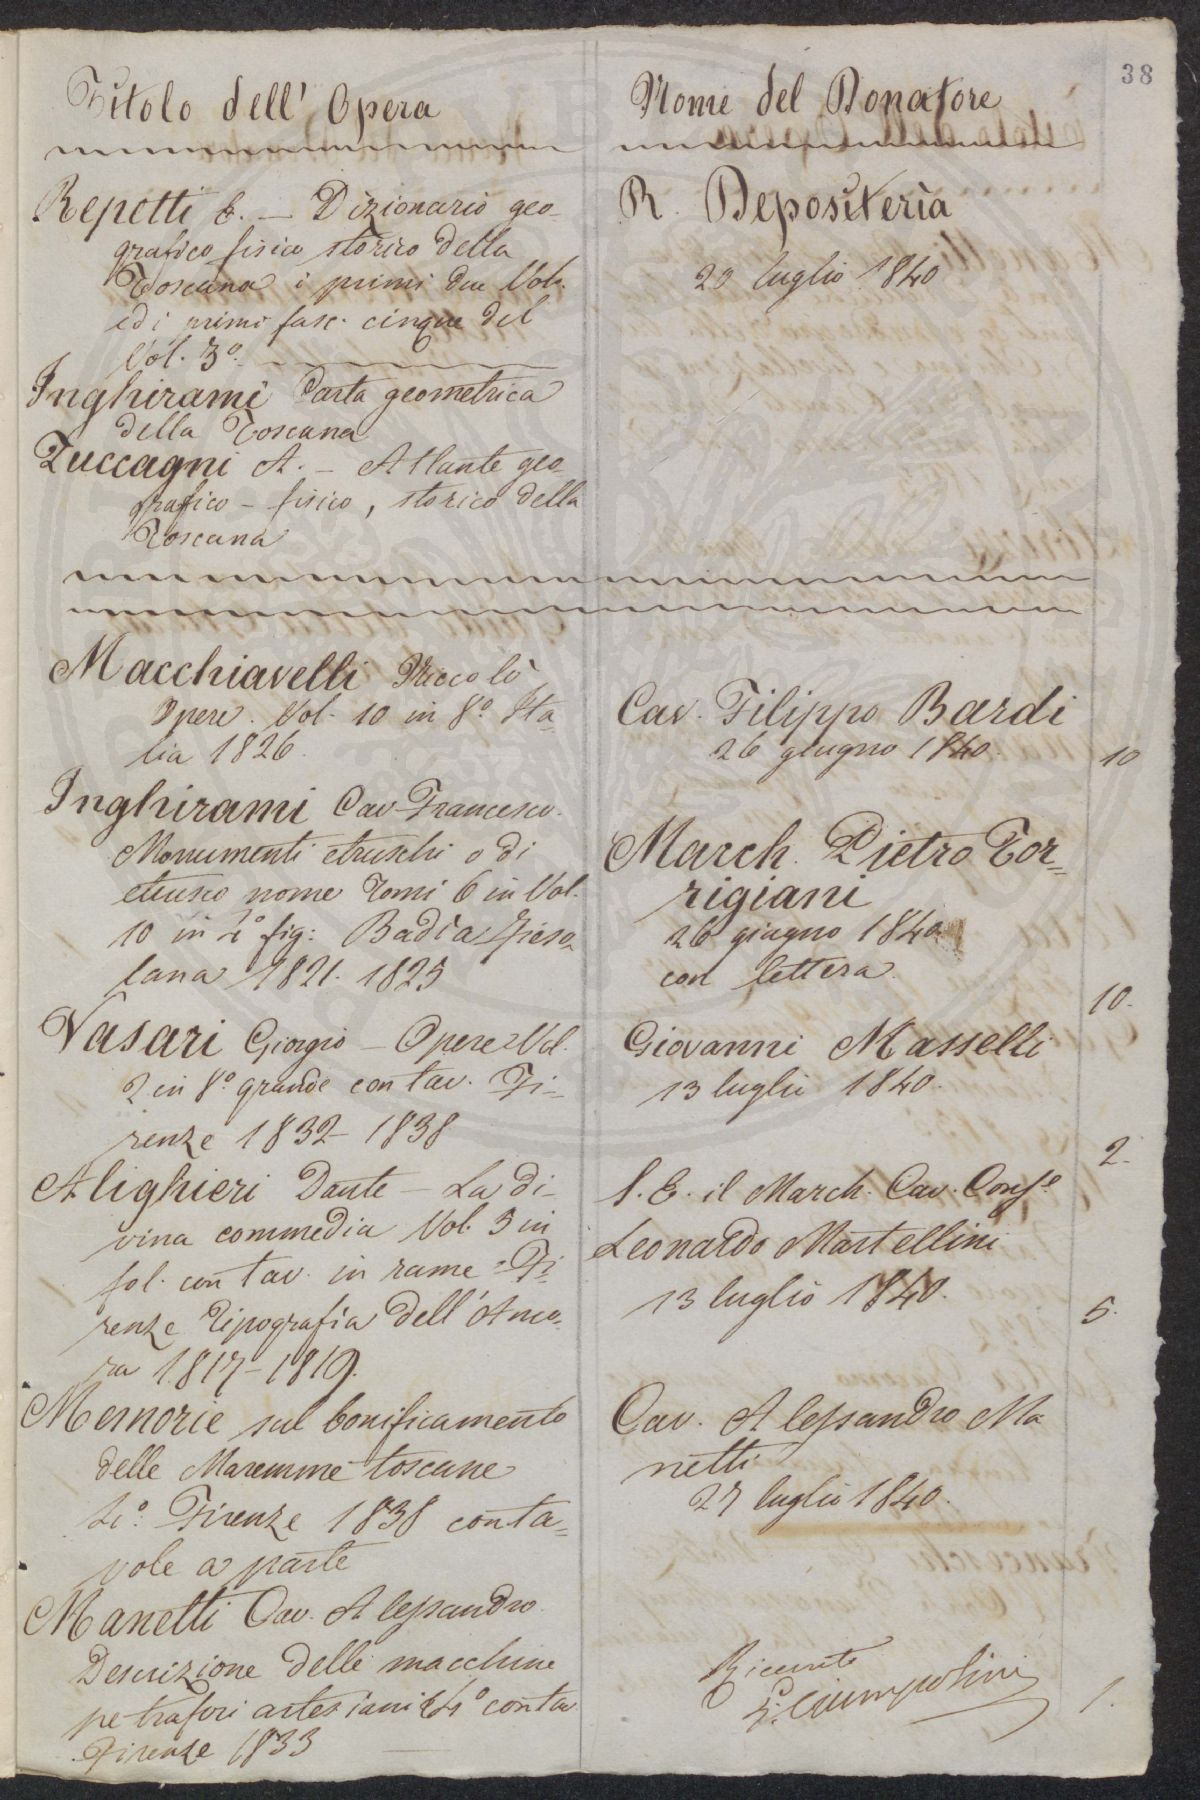 38
Titolo dell' Opera
Nome del Donatore
Repetti E. — Dizionario geo-
grafico fisico storico della
Toscana i primi due Vol.
ed i primi fasc. cinque del
Vol. 3º.
R. Depositeria
20 luglio 1840
Inghirami Carta geometrica
della Toscana
Zuccagni A. — Atlante geo-
grafico - fisico, storico della
Toscana
Macchiavelli Niccolò
Opere. Vol. 10 in 8º. Ita-
lia 1826
Cav. Filippo Bardi
26 giugno 1840.
10
Inghirami Cav. Francesco.
Monumenti etruschi o di
etrusco nome Tomi 6 in Vol.
10 in 4º fig: Badia Fieso-
lana 1821. 1825
March. Pietro Tor=
rigiani
26 giugno 1840
con lettera.
10.
Vasari Giorgio — Opere Vol.
2 in 8º grande con tav. Fi-
renze 1832 - 1838
Giovanni Masselli
13 luglio 1840.
2.
Alighieri Dante — La di-
vina commedia Vol. 5 in
fol. con tav. in rame - Fi-
renze Tipografia dell'Anco-
ra 1817 - 1819.
S. E. il March. Cav. Consº.
Leonardo Martellini
13 luglio 1840.
5.
Memorie sul bonificamento
delle Maremme toscane
4º. Firenze 1838 con ta=
vole a parte
Cav. Alessandro Ma
netti
27 luglio 1840.
Manetti Cav. Alessandro
Descrizione delle macchine
petrafori artesiani 4º con tav.
Firenze 1833
Ricevute
Giampolini
1.